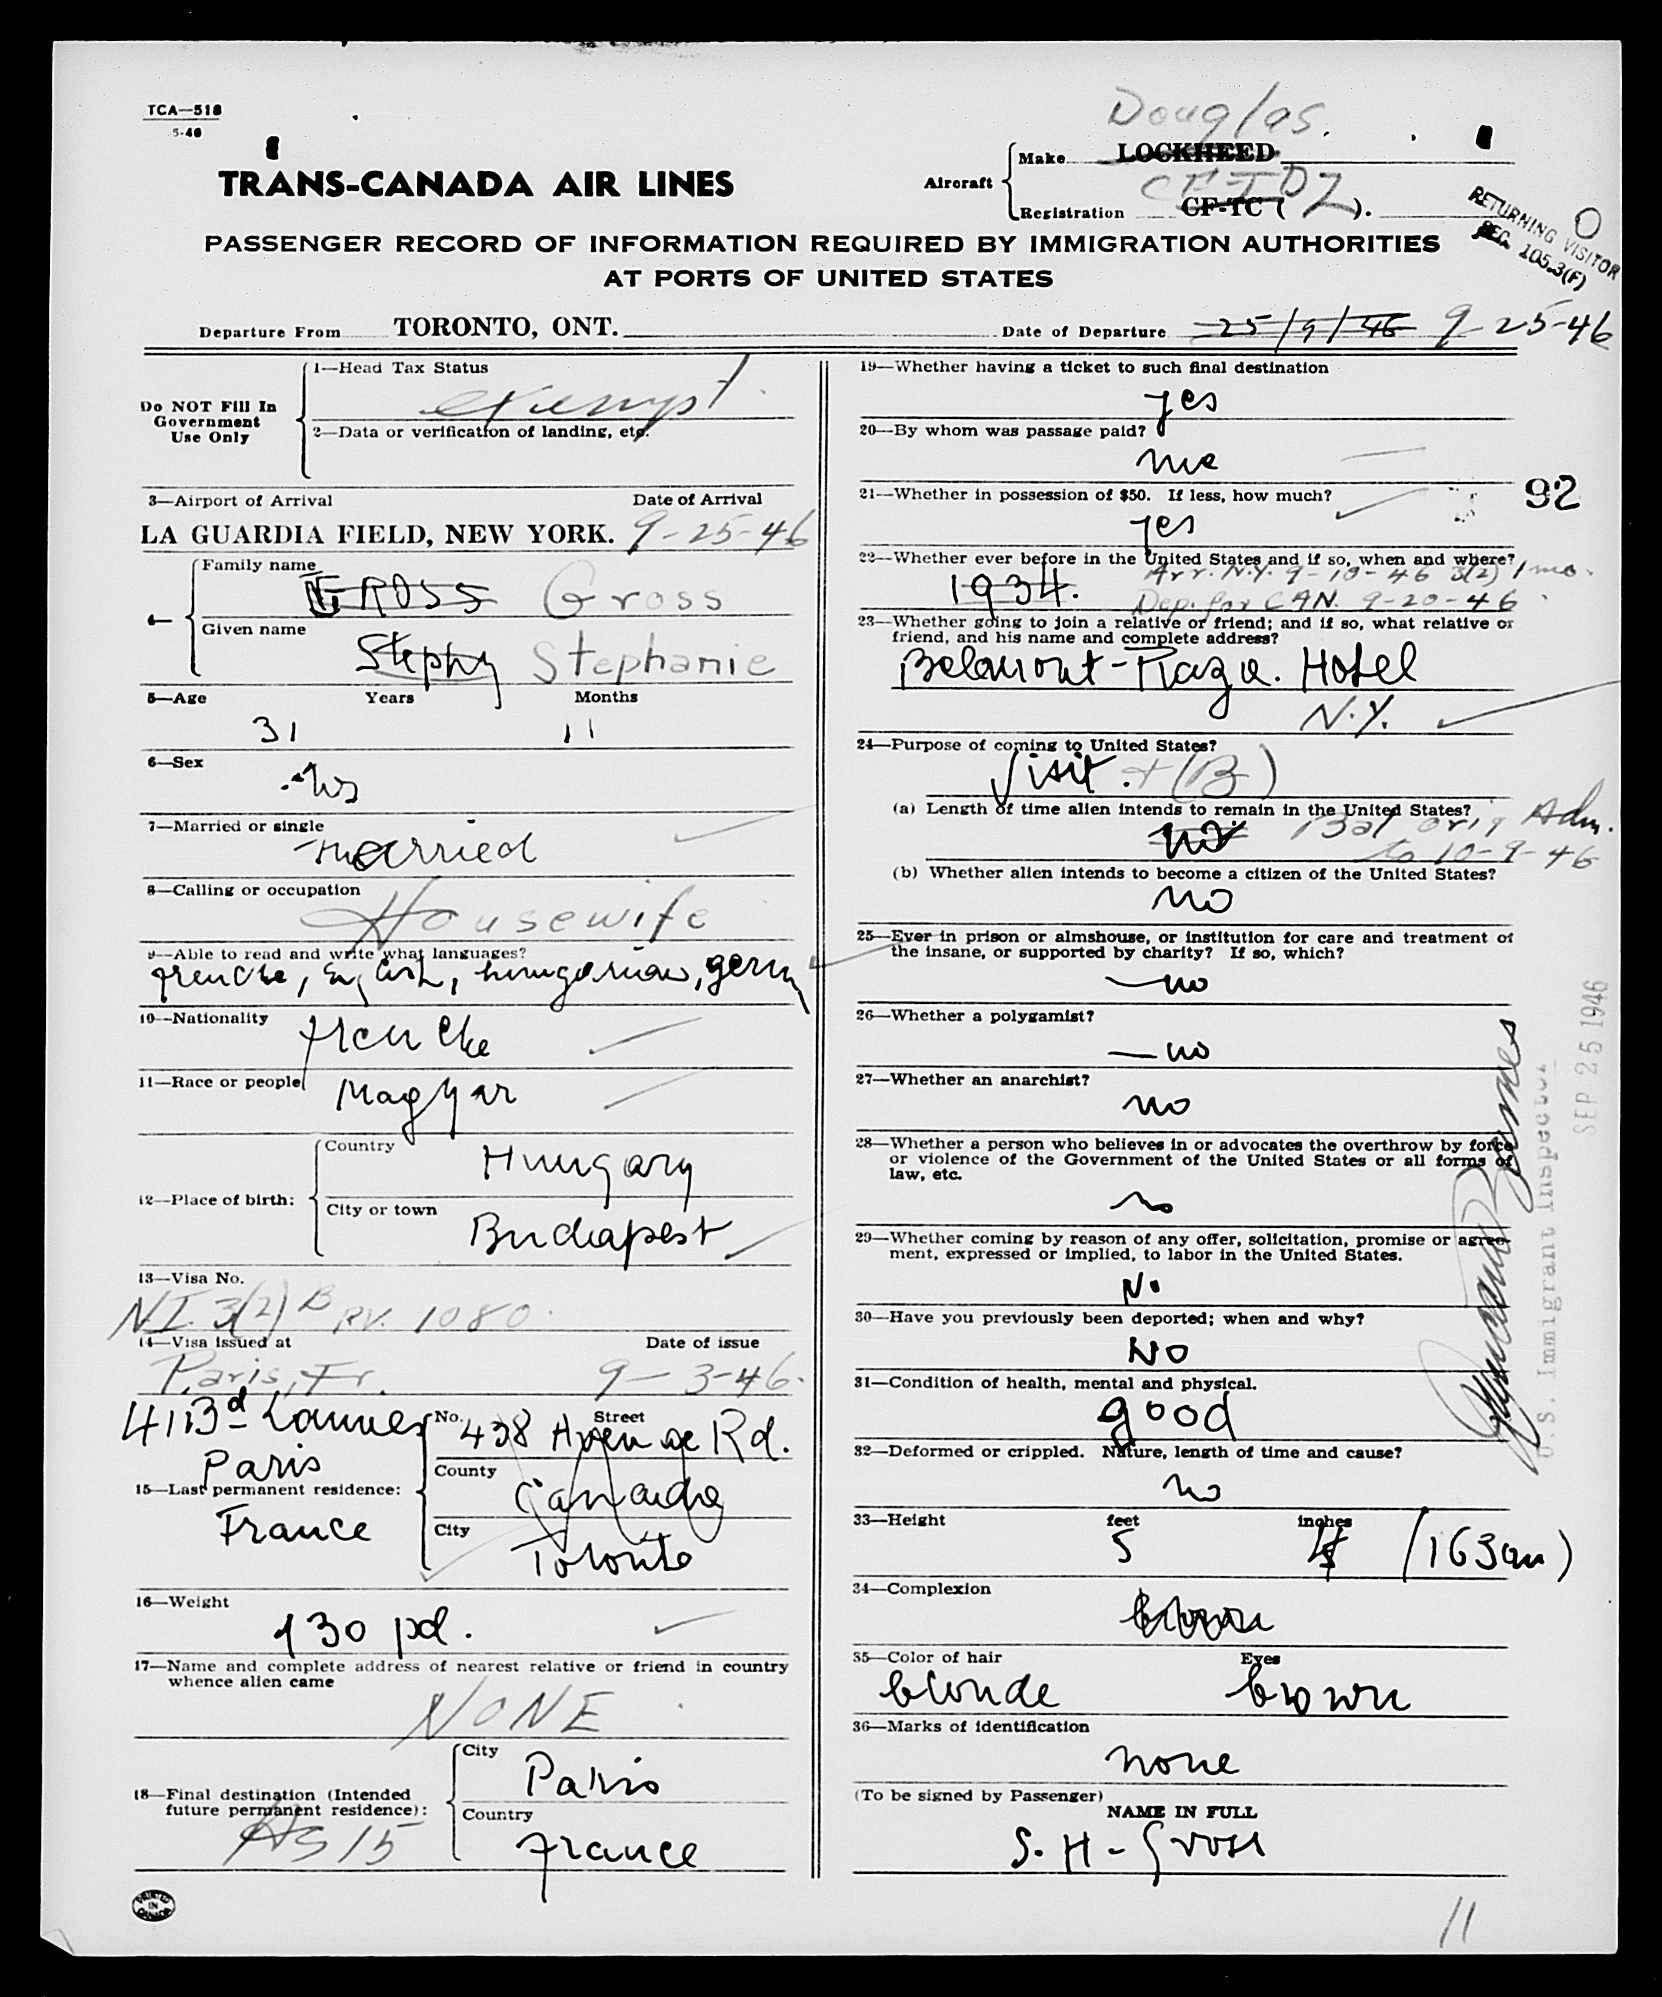 TCA—518
5-46
Douglas.
TRANS-CANADA AIR LINES
Aircraft
Make LOCKHEED
CF-TDZ
Registration CF-TC ( ).
RETURNING VISITOR
SEC. 105.3(F)
O
PASSENGER RECORD OF INFORMATION REQUIRED BY IMMIGRATION AUTHORITIES
AT PORTS OF UNITED STATES
Departure From TORONTO, ONT. Date of Departure 25/9/46 9-25-46
Do NOT Fill In
Government
Use Only
1—Head Tax Status
exempt
2—Data or verification of landing, etc.
3—Airport of Arrival Date of Arrival
LA GUARDIA FIELD, NEW YORK. 9-25-46
4—
Family name
GROSS Gross
Given name
Stephy Stephanie
5—Age Years Months
31 11
6—Sex
7—Married or single
married
8—Calling or occupation
Housewife
9—Able to read and write what languages?
frenche, English, hungarian, germ
10—Nationality
frenche
11—Race or people
Magyar
12—Place of birth:
Country
Hungary
City or town
Budapest
13—Visa No.
N.I. 3(2) B P.V. 1080.
14—Visa issued at Date of issue
Paris, Fr. 9-3-46.
41 Bd Lannes
Paris
15—Last permanent residence:
France
No. Street
438 Avenue Rd.
County
Canada
City
Toronto
16—Weight
130 pd.
17—Name and complete address of nearest relative or friend in country
whence alien came
NONE
18—Final destination (Intended
future permanent residence):
As 15
City
Paris
Country
france
PRINTED
IN
CANADA
19—Whether having a ticket to such final destination
yes
20—By whom was passage paid?
me
21—Whether in possession of $50. If less, how much?
yes
92
22—Whether ever before in the United States and if so, when and where?
1934. Arr. N.Y. 9-10-46 3(2) 1 mo.
Dep. for CAN. 9-20-46
23—Whether going to join a relative or friend; and if so, what relative or
friend, and his name and complete address?
Belmont-Plaza. Hotel
N.Y.
24—Purpose of coming to United States?
Visit. + (B)
(a) Length of time alien intends to remain in the United States?
Bal orig Adm.
to 10-9-46
(b) Whether alien intends to become a citizen of the United States?
no
25—Ever in prison or almshouse, or institution for care and treatment of
the insane, or supported by charity? If so, which?
—no
26—Whether a polygamist?
—no
27—Whether an anarchist?
no
28—Whether a person who believes in or advocates the overthrow by force
or violence of the Government of the United States or all forms of
law, etc.
no
29—Whether coming by reason of any offer, solicitation, promise or agree-
ment, expressed or implied, to labor in the United States.
No
30—Have you previously been deported; when and why?
NO
31—Condition of health, mental and physical.
good
32—Deformed or crippled. Nature, length of time and cause?
no
33—Height feet inches
5 4 (163cm)
34—Complexion
35—Color of hair Eyes
blonde brown
36—Marks of identification
none
(To be signed by Passenger)
NAME IN FULL
S. H-Gross
U.S. Immigrant Inspector
SEP 25 1946
11